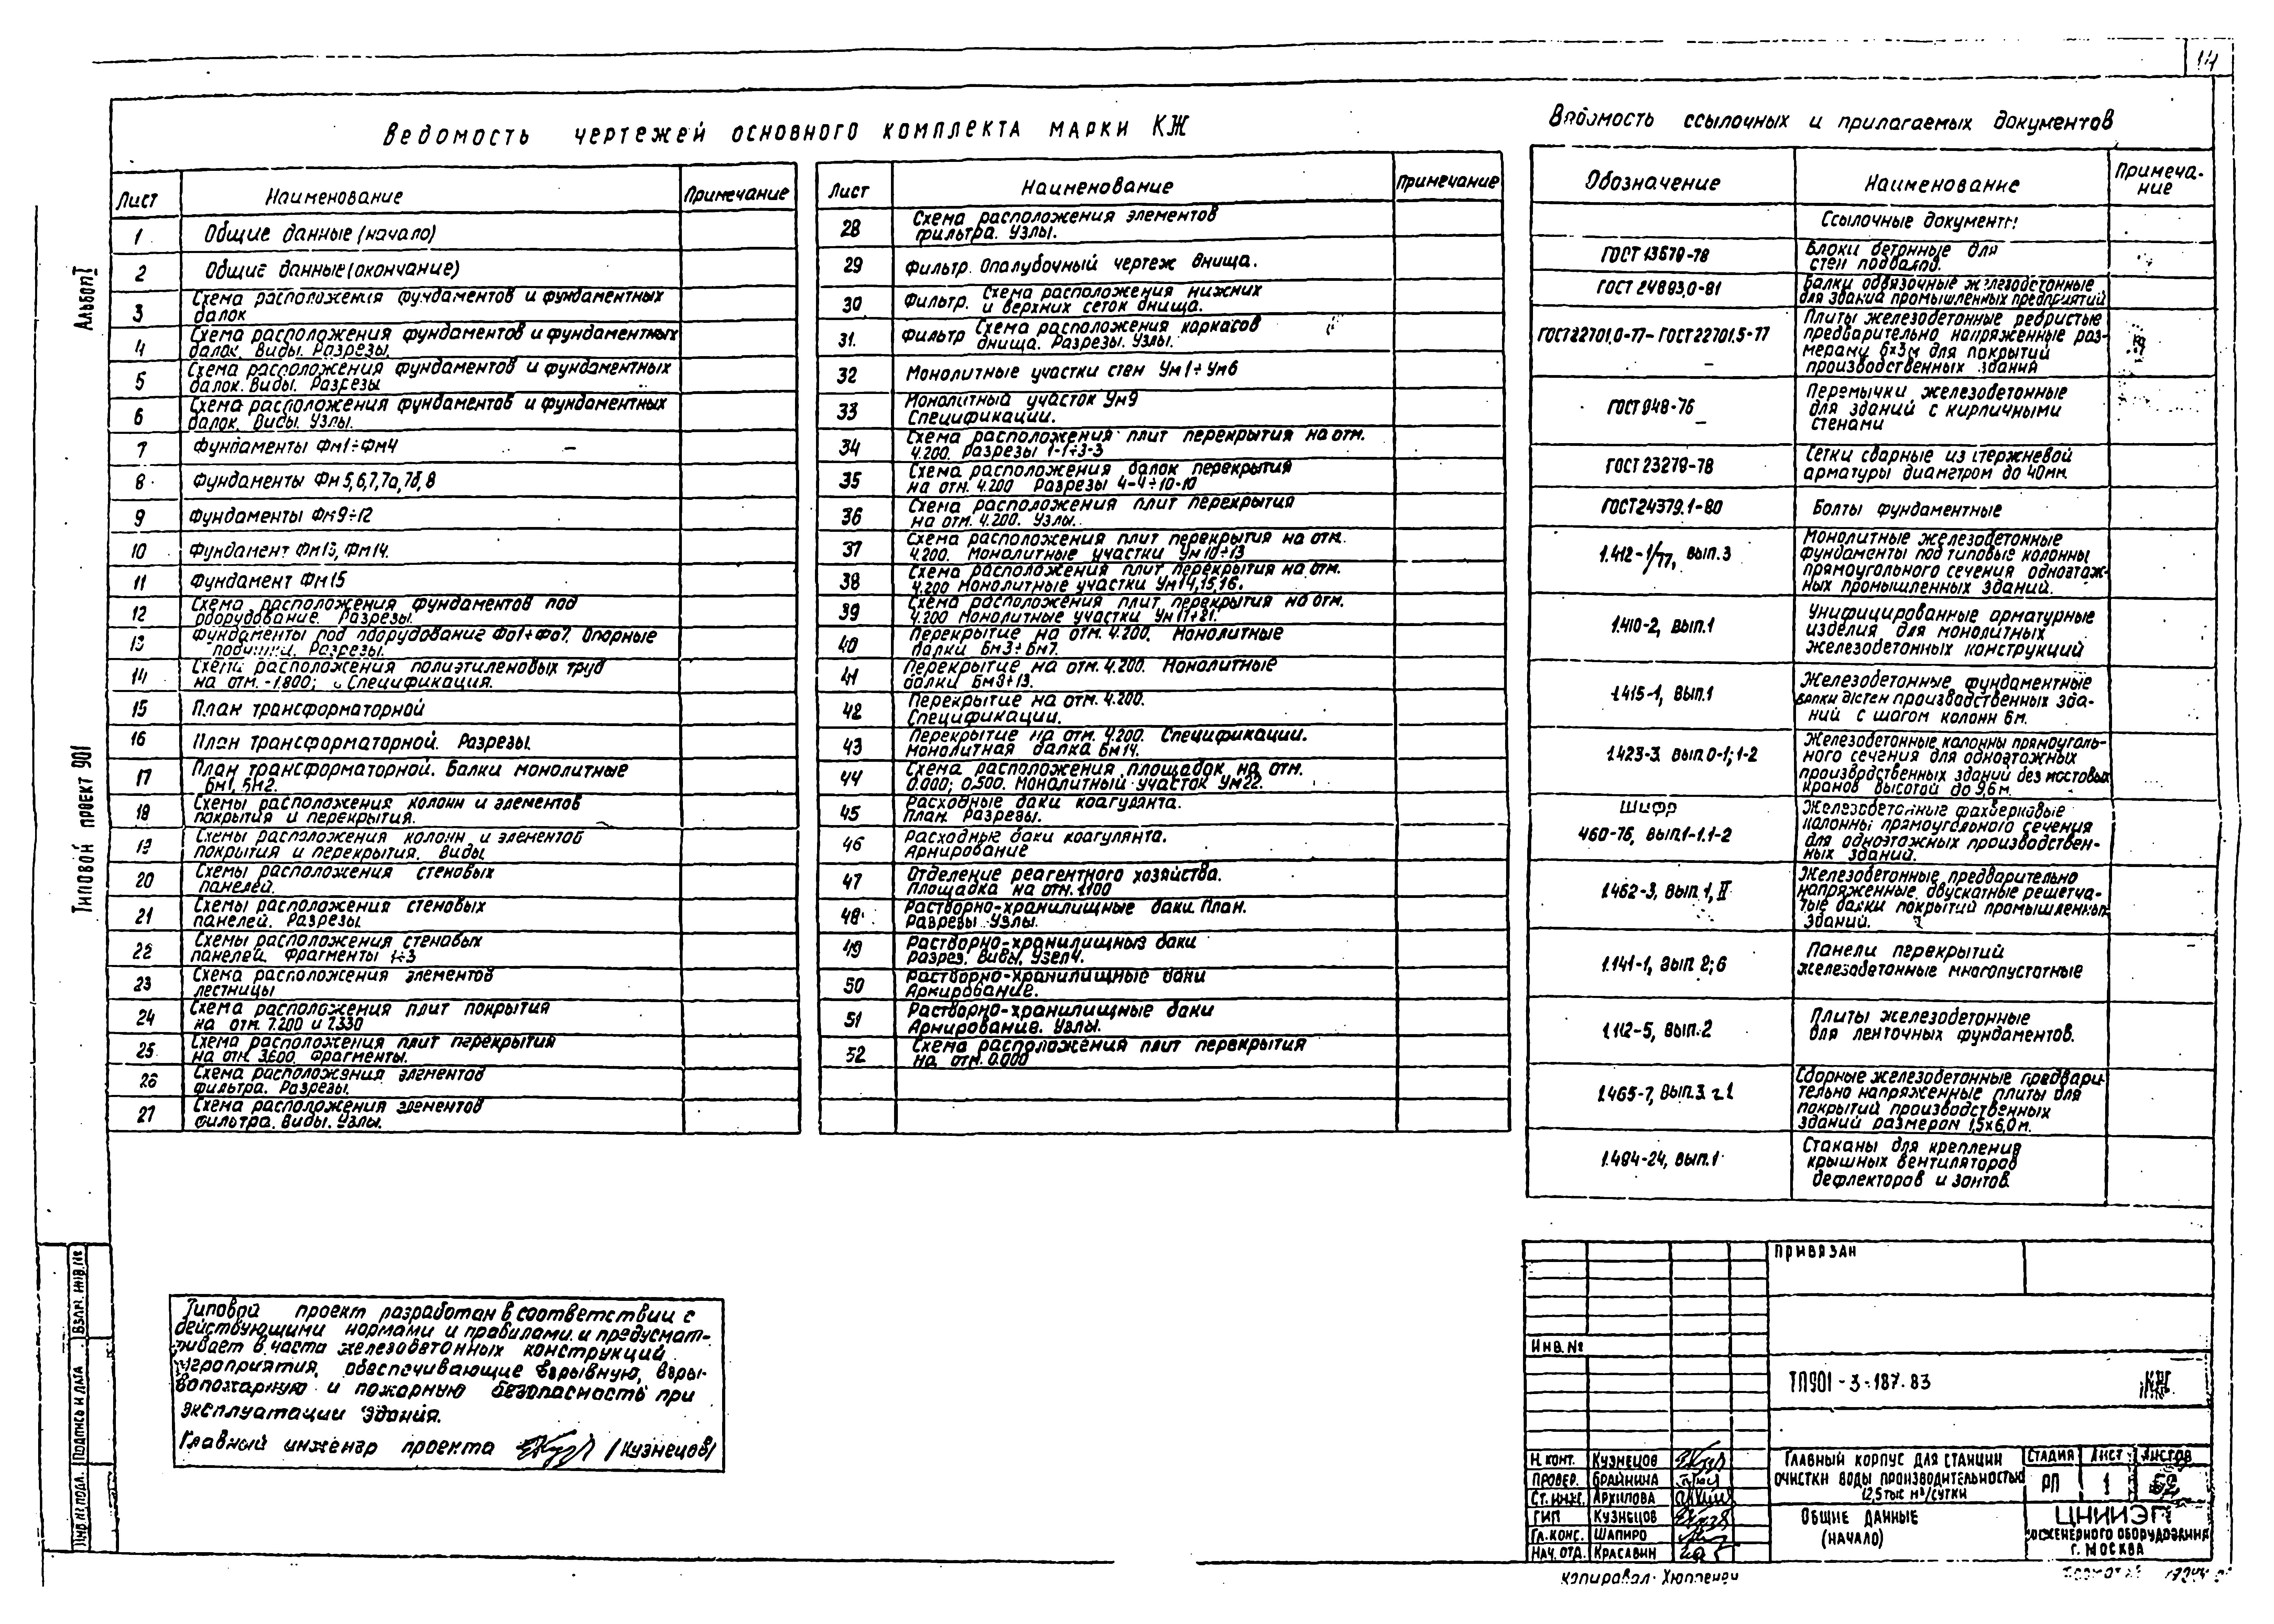 14
Ведомость чертежей основного комплекта марки КЖ
Лист Наименование Примечание
1 Общие данные (начало)
2 Общие данные (окончание)
3 Схема расположения фундаментов и фундаментных
балок
4 Схема расположения фундаментов и фундаментных
балок. Виды. Разрезы.
5 Схема расположения фундаментов и фундаментных
балок. Виды. Разрезы
6 Схема расположения фундаментов и фундаментных
балок. Виды. Узлы.
7 Фундаменты Фм1÷Фм4
8 Фундаменты Фм 5,6,7,7а,7б,8
9 Фундаменты Фм9÷12
10 Фундамент Фм13, Фм14.
11 Фундамент Фм15
12 Схема расположения фундаментов под
оборудование. Разрезы.
13 Фундаменты под оборудование Фо1÷Фо7. Опорные
подушки. Разрезы.
14 Схема расположения полиэтиленовых труб
на отм. -1.800; Спецификация.
15 План трансформаторной
16 План трансформаторной. Разрезы.
17 План трансформаторной. Балки монолитные
Бм1, Бм2.
18 Схемы расположения колонн и элементов
покрытия и перекрытия.
19 Схемы расположения колонн и элементов
покрытия и перекрытия. Виды
20 Схемы расположения стеновых
панелей.
21 Схемы расположения стеновых
панелей. Разрезы
22 Схемы расположения стеновых
панелей. Фрагменты 1÷3
23 Схема расположения элементов
лестницы
24 Схема расположения плит покрытия
на отм. 7.200 и 7.330
25 Схема расположения плит перекрытия
на отм. 3.600. Фрагменты.
26 Схема расположения элементов
фильтра. Разрезы.
27 Схема расположения элементов
фильтра. Виды. Узлы.
Лист Наименование Примечание
28 Схема расположения элементов
фильтра. Узлы.
29 Фильтр. Опалубочный чертеж днища.
30 Фильтр. Схема расположения нижних
и верхних сеток днища.
31. Фильтр Схема расположения каркасов
днища. Разрезы. Узлы.
32 Монолитные участки стен Ум1÷Ум6
33 Монолитный участок Ум9
Спецификации.
34 Схема расположения плит перекрытия на отм.
4.200. Разрезы 1-1÷3-3
35 Схема расположения балок перекрытия
на отм. 4.200 Разрезы 4-4÷10-10
36 Схема расположения плит перекрытия
на отм. 4.200. Узлы.
37 Схема расположения плит перекрытия на отм.
4.200. Монолитные участки Ум10÷13
38 Схема расположения плит перекрытия на отм.
4.200 Монолитные участки Ум14,15,16.
39 Схема расположения плит перекрытия на отм.
4.200 Монолитные участки Ум17÷21.
40 Перекрытие на отм. 4.200. Монолитные
балки Бм3÷Бм7.
41 Перекрытие на отм. 4.200. Монолитные
балки Бм8÷13.
42 Перекрытие на отм. 4.200.
Спецификации.
43 Перекрытие на отм. 4.200. Спецификации.
Монолитная балка Бм14.
44 Схема расположения площадок на отм.
0.000; 0.500. Монолитный участок Ум22.
45 Расходные баки коагулянта.
План. Разрезы.
46 Расходные баки коагулянта.
Армирование
47 Отделение реагентного хозяйства.
Площадка на отм. 1.100
48 Растворно-хранилищные баки План.
Разрезы Узлы.
49 Растворно-хранилищные баки
Разрез. Виды. Узел 4.
50 Растворно-хранилищные баки
Армирование.
51 Растворно-хранилищные баки
Армирование. Узлы.
52 Схема расположения плит перекрытия
на отм. 0.000
Ведомость ссылочных и прилагаемых документов
Обозначение Наименование Примеча-
ние
Ссылочные документы
ГОСТ 13579-78 Блоки бетонные для
стен подвалов.
ГОСТ 24893,0-81 Балки обвязочные железобетонные
для зданий промышленных предприятий
ГОСТ22701,0-77-ГОСТ22701.5-77 Плиты железобетонные ребристые
предварительно напряженные раз-
мерами 6х3м для покрытий
производственных зданий
ГОСТ 948-76 Перемычки железобетонные
для зданий с кирпичными
стенами
ГОСТ 23279-78 Сетки сварные из стержневой
арматуры диаметром до 40мм.
ГОСТ24379.1-80 Болты фундаментные
1.412-1/77, вып.3 Монолитные железобетонные
фундаменты под типовые колонны
прямоугольного сечения одноэтаж-
ных промышленных зданий.
1.410-2, вып.1 Унифицированные арматурные
изделия для монолитных
железобетонных конструкций
1.415-1, вып.1 Железобетонные фундаментные
балки д/стен производственных зда-
ний с шагом колонн 6м.
1.423-3. вып.0-1; 1-2 Железобетонные колонны прямоуголь-
ного сечения для одноэтажных
производственных зданий без мостовых
кранов высотой до 9,6м.
Шифр
460-76, вып.1-1.1-2 Железобетонные фахверковые
колонны прямоугольного сечения
для одноэтажных производствен-
ных зданий.
1.462-3, вып.1, II Железобетонные предварительно
напряженные двускатные решетча-
тые балки покрытий промышленных
зданий.
1.141-1, вып 2; 6 Панели перекрытий
железобетонные многопустотные
1.112-5, вып.2 Плиты железобетонные
для ленточных фундаментов.
1.465-7, вып.3 Сборные железобетонные предвари-
тельно напряженные плиты для
покрытий производственных
зданий размером 1,5х6,0м.
1.494-24, вып.1 Стаканы для крепления
крышных вентиляторов
дефлекторов и зонтов.
Альбом I
Типовой проект 901
Взам. инв. №
Подпись и дата
Инв. № подл.
Типовой проект разработан в соответствии с
действующими нормами и правилами и предусмат-
ривает в части железобетонных конструкций
мероприятия, обеспечивающие взрывную, взры-
вопожарную и пожарную безопасность при
эксплуатации здания.
Главный инженер проекта /Кузнецов/
Привязан
Инв. №
ТП901-3-187.83 КЖ
Н. конт. Кузнецов
Провер. Брайнина
Ст. инж. Архипова
ГИП Кузнецов
Гл. конс. Шапиро
Нач. отд. Красавин
Главный корпус для станции
очистки воды производительностью
12,5 тыс м³/сутки
Стадия Лист Листов
РП 1
Общие данные
(начало)
ЦНИИЭП
инженерного оборудования
г. Москва
Копировал:
Формат